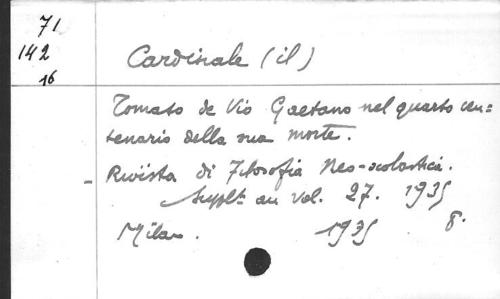 71
142
16
Cardinale (il)
Tomaso de Vio Gaetano nel quarto cen=
tenario della sua morte.
- Rivista di Filosofia Neo-scolastica.
Supplt au vol. 27. 1935
Milan. 1935 8.